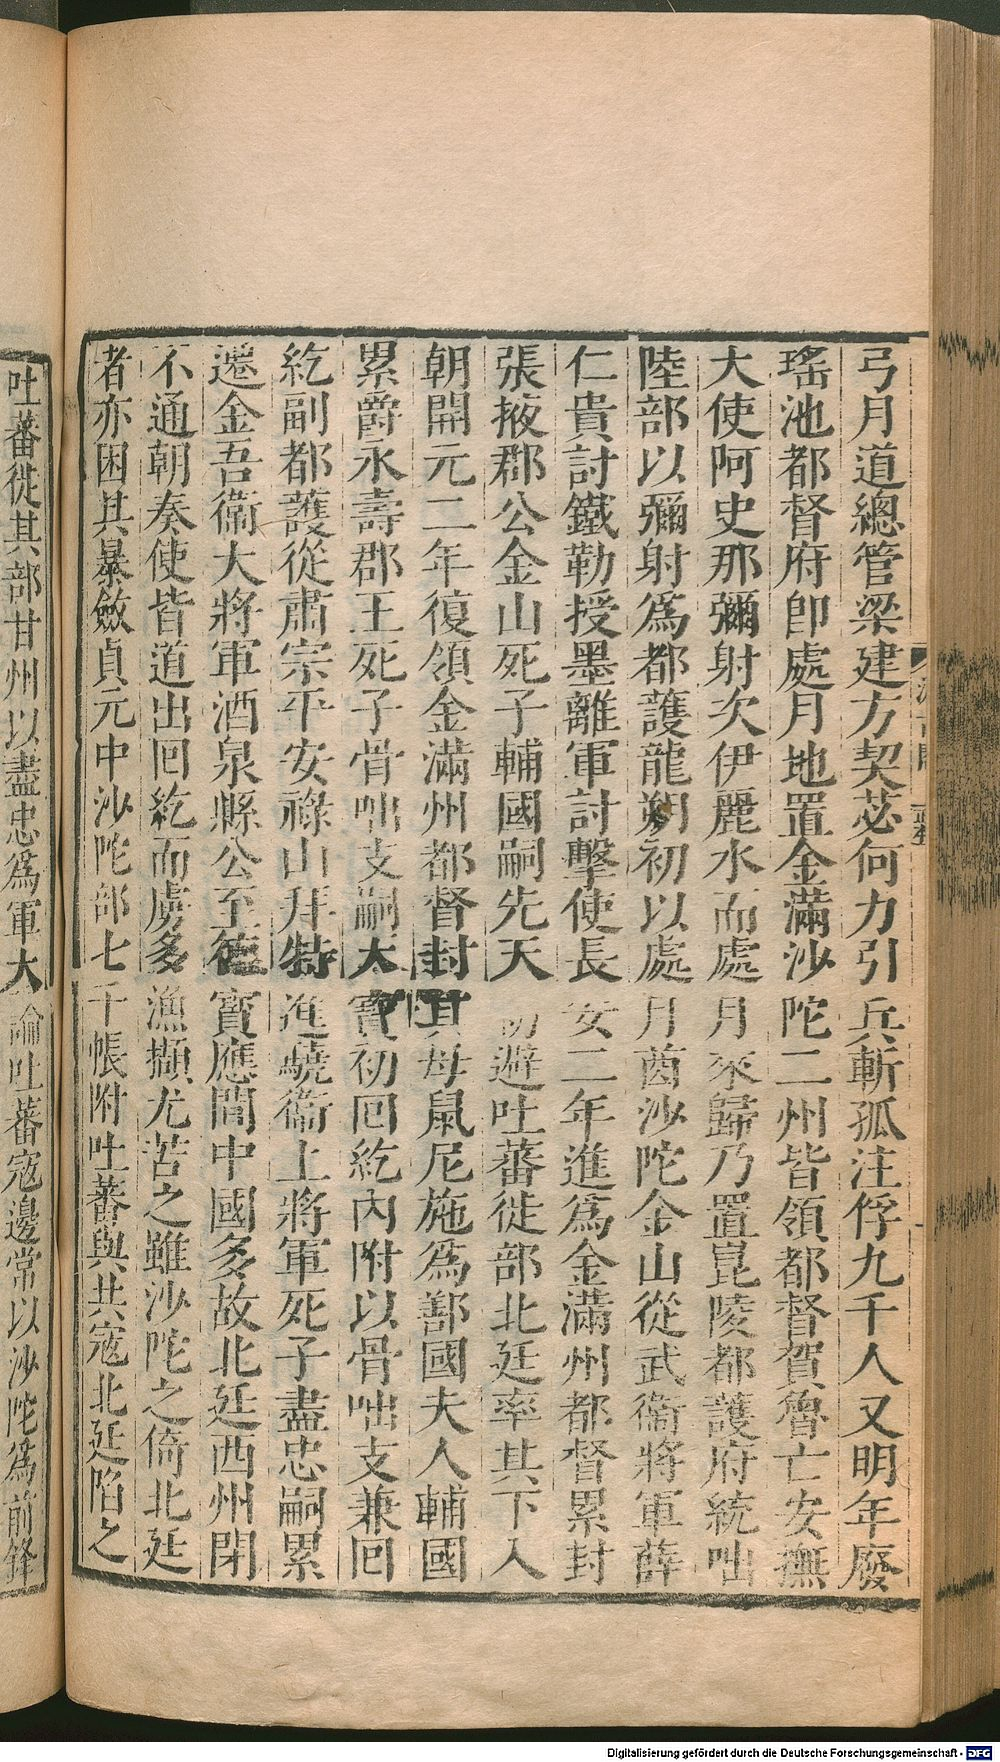 弓月道總管梁建方契苾何力引兵斬孤注俘九千人又明年廢
瑤池都督府卽處月地置金滿沙陀二州皆領都督賀魯亡安撫
大使阿史那彌射次伊麗水而處月來歸乃置崑陵都護府統咄
陸部以彌射爲都護龍朔初以處月酋沙陀金山從武衞將軍薛
仁貴討鐵勒授墨離軍討擊使長安二年進爲金滿州都督累封
張掖郡公金山死子輔國嗣先天初避吐蕃徙部北廷率其下入
朝開元二年復領金滿州都督封其母鼠尼施爲鄯國夫人輔國
累爵永壽郡王死子骨咄支嗣天寶初回紇內附以骨咄支兼回
紇副都護從肅宗平安祿山拜特進驍衞上將軍死子盡忠嗣累
遷金吾衞大將軍酒泉縣公至德寶應間中國多故北廷西州閉
不通朝奏使皆道出回紇而虜多漁擷尤苦之雖沙陀之倚北廷
者亦困其暴斂貞元中沙陀部七千帳附吐蕃與共寇北廷陷之
吐蕃徙其部甘州以盡忠爲軍大論吐蕃寇邊常以沙陀爲前鋒
Digitalisierung gefördert durch die Deutsche Forschungsgemeinschaft - DFG